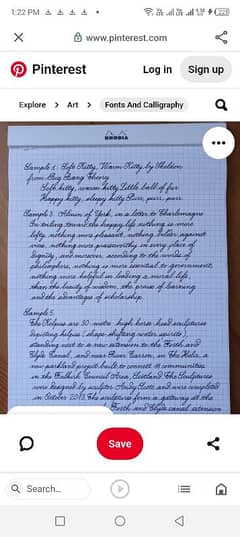 1:22 PM
www.pinterest.com
Pinterest
Log in
Sign up
Explore
Art
Fonts And Calligraphy
RHODIA
Sample 1. Soft Kitty, Warm Kitty by Sheldon
from Big Bang Theory
Soft kitty, warm kitty Little ball of fur
Happy kitty, sleepy kitty Purr, purr, purr
Sample 3. Alcuin of York, in a letter to Charlemagne
In toiling toward the happy life nothing is more
lofty, nothing more pleasant, nothing bolder against
vice, nothing more praiseworthy in every place of
dignity, and moreover, according to the words of
philosophers, nothing is more essential to government,
nothing more helpful in leading a moral life,
than the beauty of wisdom, the praise of learning
and the advantages of scholarship.
Sample 5.
The Kelpies are 30-metre high horse-head sculptures
depicting kelpies (shape-shifting water spirits),
standing next to a new extension to the Forth and
Clyde Canal, and near River Carron, in The Helix, a
new parkland project built to connect 16 communities
in the Falkirk Council Area, Scotland. The Sculptures
were designed by sculptor Andy Scott and were completed
in October 2013. The sculptures form a gateway at the
Forth and Clyde canal extension
Save
Search...